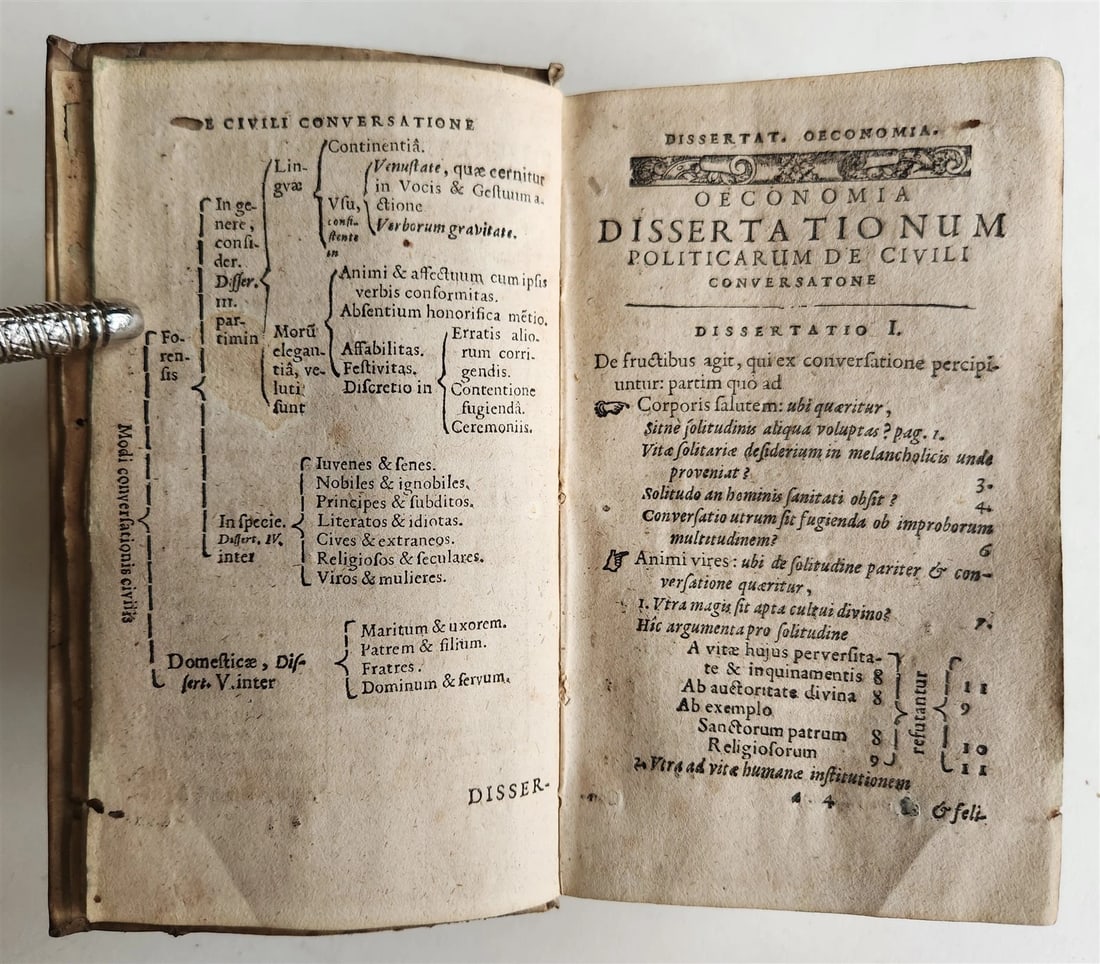 E CIVILI CONVERSATIONE
Continentiâ.
Lin-
gvæ
Venustate, quæ cernitur
in Vocis & Gestuum a.
ctione
Vsu,
consi-
stente
in
Verborum gravitate.
In ge-
nere,
consi-
der.
Disser.
III.
par-
timin
Animi & affectuum cum ipsis
verbis conformitas.
Absentium honorifica mētio.
Morū
elegan-
tiâ, ve-
luti
sunt
Affabilitas.
Festivitas.
Discretio in
Erratis alio-
rum corri-
gendis.
Contentione
fugiendâ.
Ceremoniis.
Fo-
ren-
sis
Modi conversationis civilis
In specie.
Dissert. IV.
inter
Iuvenes & senes.
Nobiles & ignobiles.
Principes & subditos.
Literatos & idiotas.
Cives & extraneos.
Religiosos & seculares.
Viros & mulieres.
Domesticæ, Dis-
sert. V. inter
Maritum & uxorem.
Patrem & filium.
Fratres.
Dominum & servum.
DISSER-
DISSERTAT. OECONOMIA.
OECONOMIA
DISSERTATIONUM
POLITICARUM DE CIVILI
CONVERSATONE
DISSERTATIO I.
De fructibus agit, qui ex conversatione percipi-
untur: partim quo ad
Corporis salutem: ubi quæritur,
Sitne solitudinis aliqua voluptas? pag. 1.
Vitæ solitariæ desiderium in melancholicis unde
proveniat? 3.
Solitudo an hominis sanitati obsit? 4.
Conversatio utrum sit fugienda ob improborum
multitudinem? 6
Animi vires: ubi de solitudine pariter & con-
versatione quæritur,
1. Vtra magis sit apta cultui divino? 7.
Hîc argumenta pro solitudine
A vitæ hujus perversita-
te & inquinamentis 8 11
Ab auctoritate divina 8 9
Ab exemplo
Sanctorum patrum 8 10
Religiosorum 9 11
refutantur
2. Vtra ad vitæ humanæ institutionem
4
& feli-